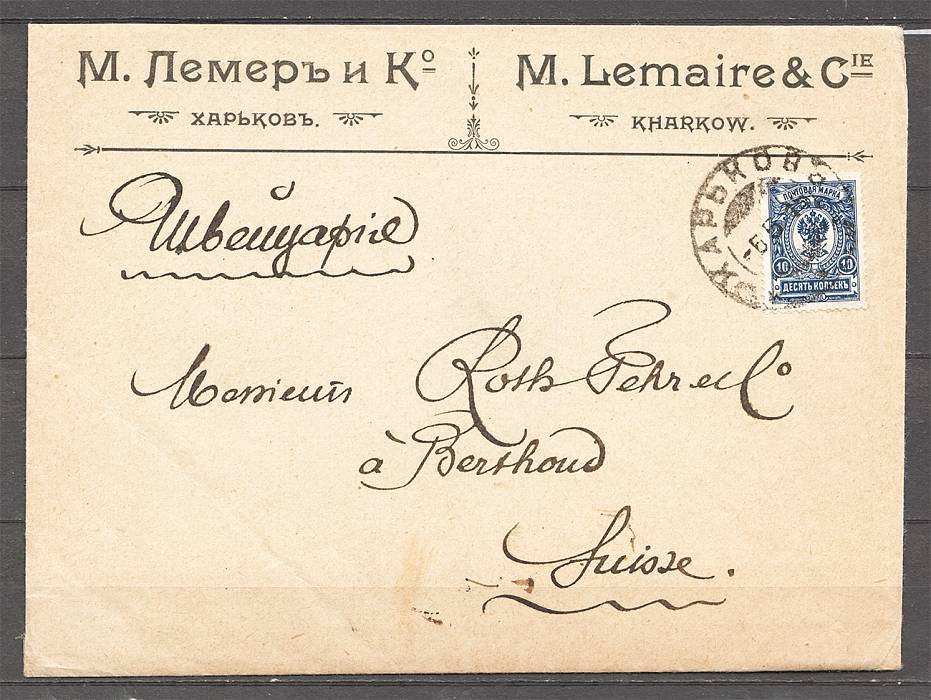 М. Лемеръ и Кº
ХАРЬКОВЪ.
M. Lemaire & CIE
KHARKOW.
ХАРЬКОВЪ
ПОЧТОВАЯ МАРКА
10 10
ДЕСЯТЬ КОПѢЕКЪ
Швейцарiя
Messieurs Roth Fehr et Cº
à Berthoud
Suisse.